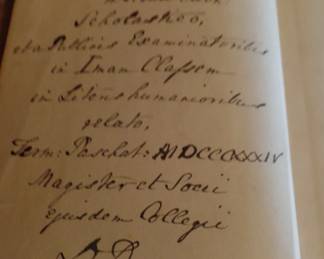 Scholastico,
et a Publicis Examinatoribus
in Imam Classem
in Literis humanioribus
relato,
Term: Paschat: MDCCCXXXIV
Magister et Socii
ejusdem Collegii
D. D.